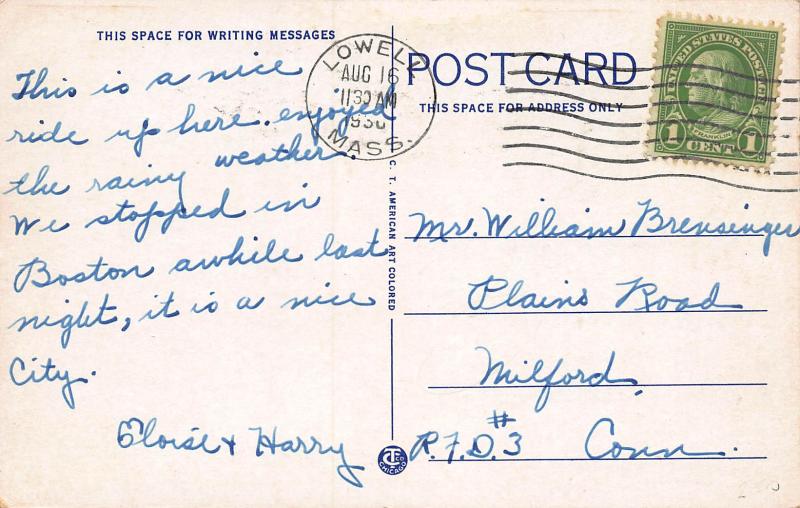 THIS SPACE FOR WRITING MESSAGES
This is a nice
ride up here. enjoyed
the rainy weather.
We stopped in
Boston awhile last
night, it is a nice
City.
Eloise + Harry
C. T. AMERICAN ART COLORED
LOWELL
AUG 16
1130 AM
1930
MASS.
POST CARD
THIS SPACE FOR ADDRESS ONLY
UNITED STATES POSTAGE
FRANKLIN
1 CENT 1
Mr. William Brensinger
Plains Road
Milford,
R.F.D. #3 Conn.
CHICAGO